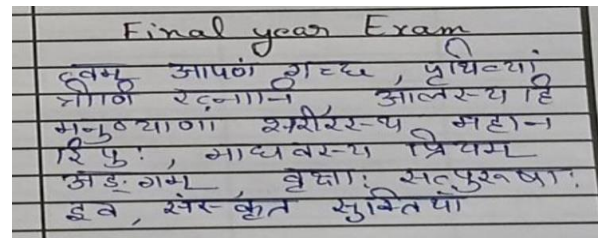 Final year Exam
त्वम् आपणं गच्छ, पृथिव्यां
त्रीणि रत्नानि, आलस्य हि
मनुष्याणां शरीरस्य महान
रिपुः, माधवस्य प्रियम्
अङ्गम्, वृक्षाः सत्पुरुषाः
इव, संस्कृत सुक्तियाँ